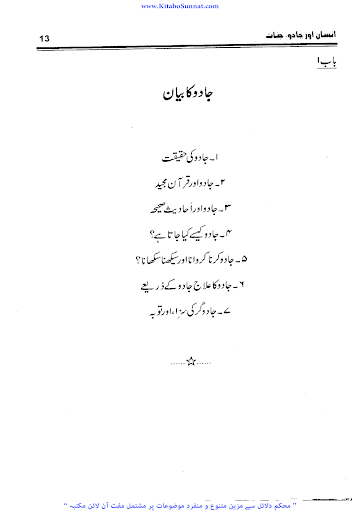 www.KitaboSunnat.com
انسان اور جادو، جنات
13
باب ا
جادو کا بیان
۱۔ جادو کی حقیقت
۲۔ جادو اور قرآن مجید
۳۔ جادو اور أحادیث صحیحہ
۴۔ جادو کیسے کیا جاتا ہے؟
۵۔ جادو کرنا کروانا اور سیکھنا سکھانا؟
۶۔ جادو کا علاج جادو کے ذریعے
۷۔ جادوگر کی سزاء اور توبہ
......☆......
" محکم دلائل سے مزین متنوع و منفرد موضوعات پر مشتمل مفت آن لائن مکتبہ "